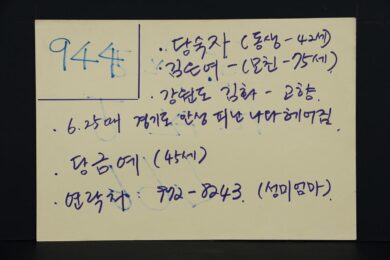 944
· 당숙자 (동생-42세)
김순영 - (모친-75세)
· 강원도 김화 - 고향
· 6.25때 경기도 안성 피난 나와 헤어짐.
· 당금예 (45세)
· 연락처 972-8243. (성미엄마)